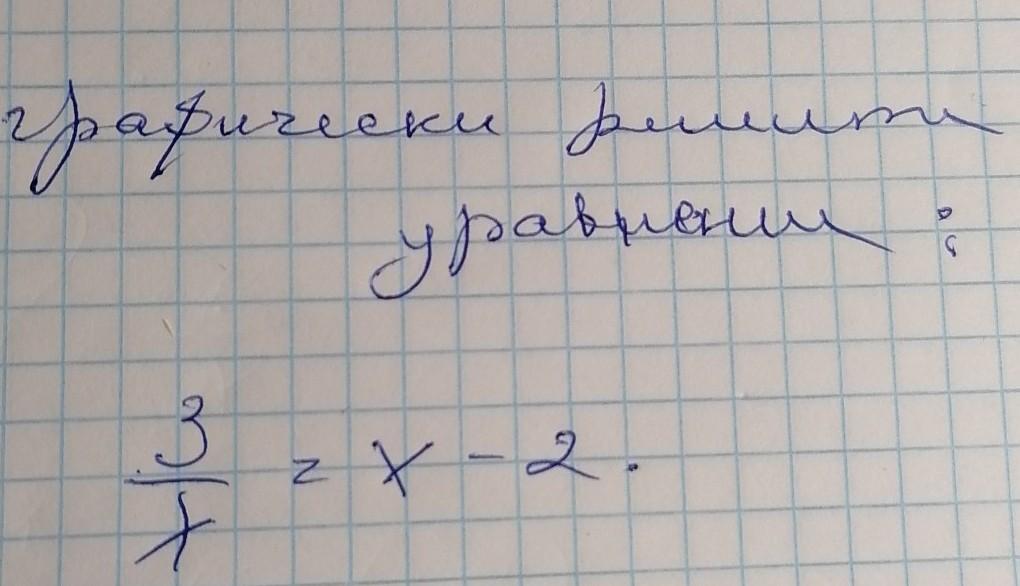 графически решить
уравнение:
3/x = x - 2.